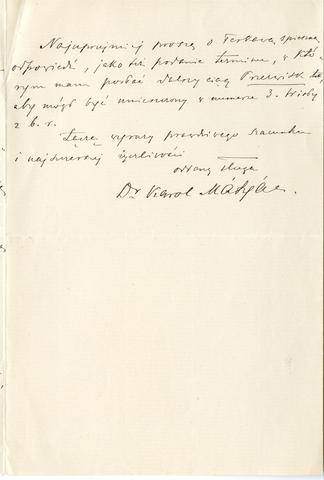 Najuprzejmiej proszę o łaskawą spieszną
odpowiedź, jako też podanie terminu, w któ-
rym mam posłać dalszy ciąg
aby mógł być umieszczony w numerze 3.
z b. r.
Łączę wyrazy prawdziwego szacunku
i najszczerszej życzliwości
oddany sługa
Dr Karol Mátyás.